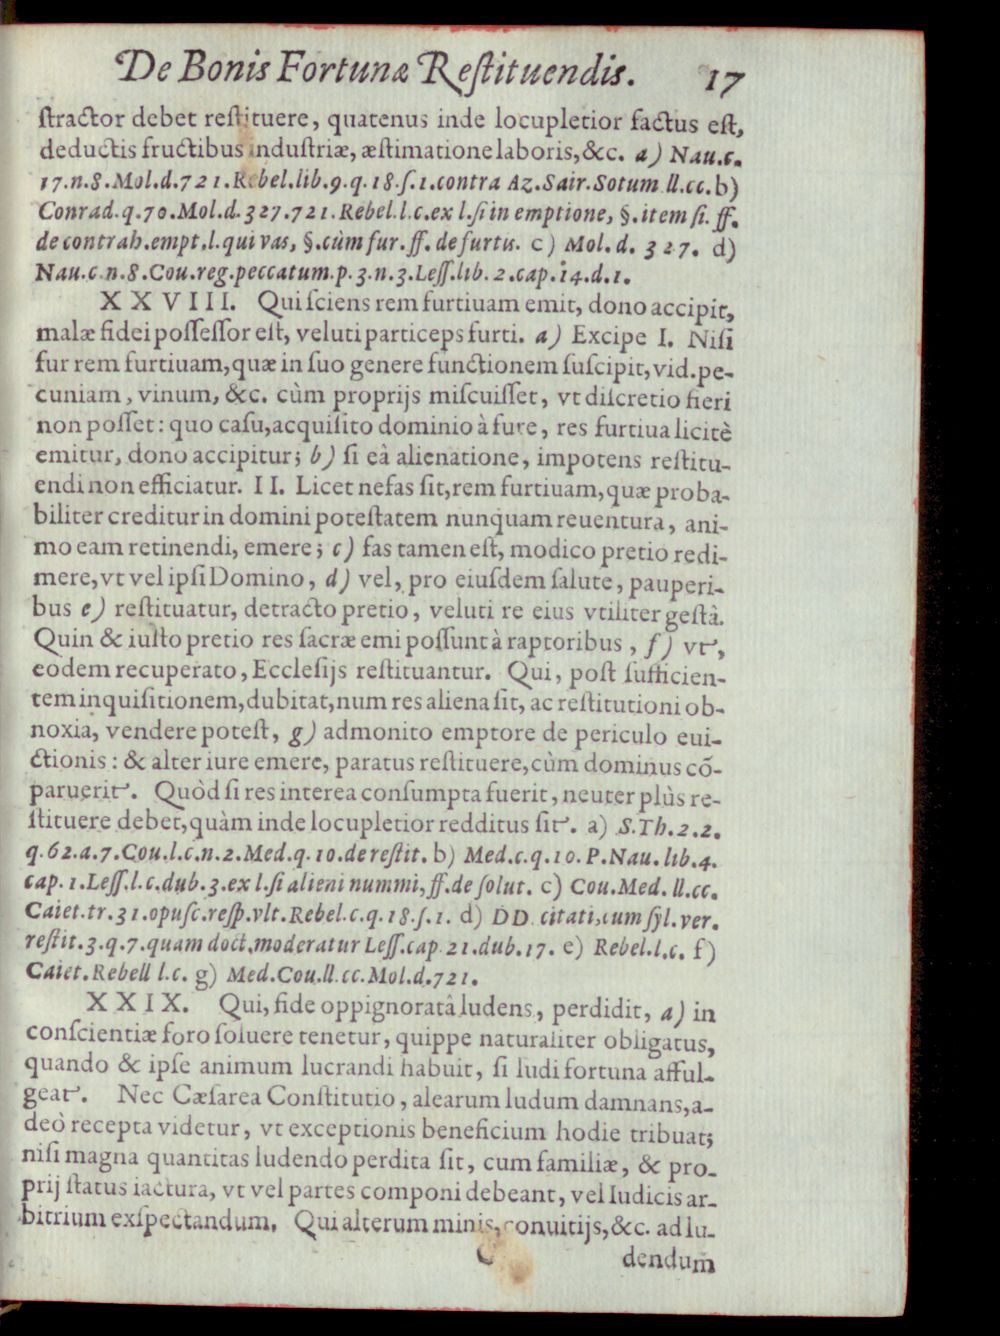 De Bonis Fortunæ Reſtituendis. 17
ſtractor debet reſtituere, quatenus inde locupletior factus eſt,
deductis fructibus induſtriæ, æſtimatione laboris, &c. a) Nau.c.
17.n.8.Mol.d.721.Rebel.lib.9.q.18.ſ.1.contra Az.Sair.Sotum ll.cc.b)
Conrad.q.70.Mol.d.327.721.Rebel.l.c.ex l.ſi in emptione, §.item ſi.ff.
de contrah.empt.l.qui vas, §.cùm fur.ff. de furtis. c) Mol.d. 327. d)
Nau.c.n.8.Cou.reg.peccatum.p.3.n.3.Leſſ.lib.2.cap.14.d.1.
XXVIII. Qui ſciens rem furtiuam emit, dono accipit,
malæ fidei poſſeſſor eſt, veluti particeps furti. a) Excipe I. Niſi
fur rem furtiuam, quæ in ſuo genere functionem ſuſcipit, vid.pe-
cuniam, vinum, &c. cùm proprijs miſcuiſſet, vt diſcretio fieri
non poſſet: quo caſu, acquiſito dominio à fure, res furtiua licitè
emitur, dono accipitur; b) ſi eâ alienatione, impotens reſtitu-
endi non efficiatur. II. Licet nefas ſit, rem furtiuam, quæ proba-
biliter creditur in domini poteſtatem nunquam reuentura, ani-
mo eam retinendi, emere; c) fas tamen eſt, modico pretio redi-
mere, vt vel ipſi Domino, d) vel, pro eiuſdem ſalute, pauperi-
bus e) reſtituatur, detracto pretio, veluti re eius vtiliter geſtâ.
Quin & iuſto pretio res ſacræ emi poſſunt à raptoribus, f) vt,
eodem recuperato, Eccleſijs reſtituantur. Qui, poſt ſufficien-
tem inquiſitionem, dubitat, num res aliena ſit, ac reſtitutioni ob-
noxia, vendere poteſt, g) admonito emptore de periculo eui-
ctionis: & alter iure emere, paratus reſtituere, cùm dominus cō-
paruerit. Quòd ſi res interea conſumpta fuerit, neuter plùs re-
ſtituere debet, quàm inde locupletior redditus ſit. a) S.Th.2.2.
q.62.a.7.Cou.l.c.n.2.Med.q.10.de reſtit. b) Med.c.q.10.P.Nau.lib.4.
cap.1.Leſſ.l.c.dub.3.ex l.ſi alieni nummi, ff.de ſolut. c) Cou.Med.ll.cc.
Caiet.tr.31.opuſc.reſp.vlt.Rebel.c.q.18.ſ.1. d) DD citati, cum ſyl.ver.
reſtit.3.q.7.quam doct.moderatur Leſſ.cap.21.dub.17. e) Rebel.l.c. f)
Caiet.Rebell l.c. g) Med.Cou.ll.cc.Mol.d.721.
XXIX. Qui, fide oppignoratâ ludens, perdidit, a) in
conſcientiæ foro ſoluere tenetur, quippe naturaliter obligatus,
quando & ipſe animum lucrandi habuit, ſi ludi fortuna afful-
geat. Nec Cæſarea Conſtitutio, alearum ludum damnans, a-
deò recepta videtur, vt exceptionis beneficium hodie tribuat;
niſi magna quantitas ludendo perdita ſit, cum familiæ, & pro-
prij ſtatus iactura, vt vel partes componi debeant, vel Iudicis ar-
bitrium exſpectandum. Qui alterum minis, conuitijs, &c. ad lu-
C dendum